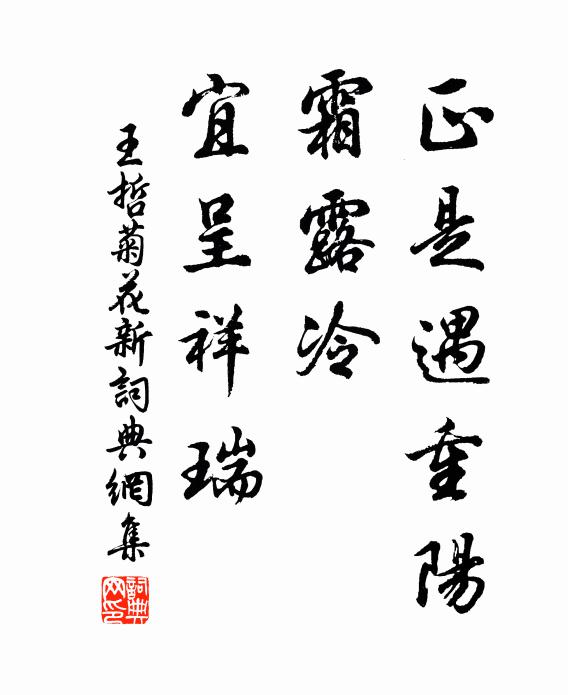 正是遇重陽
霜露冷
宜呈祥瑞
王哲菊花新詞典網集
詞典網印